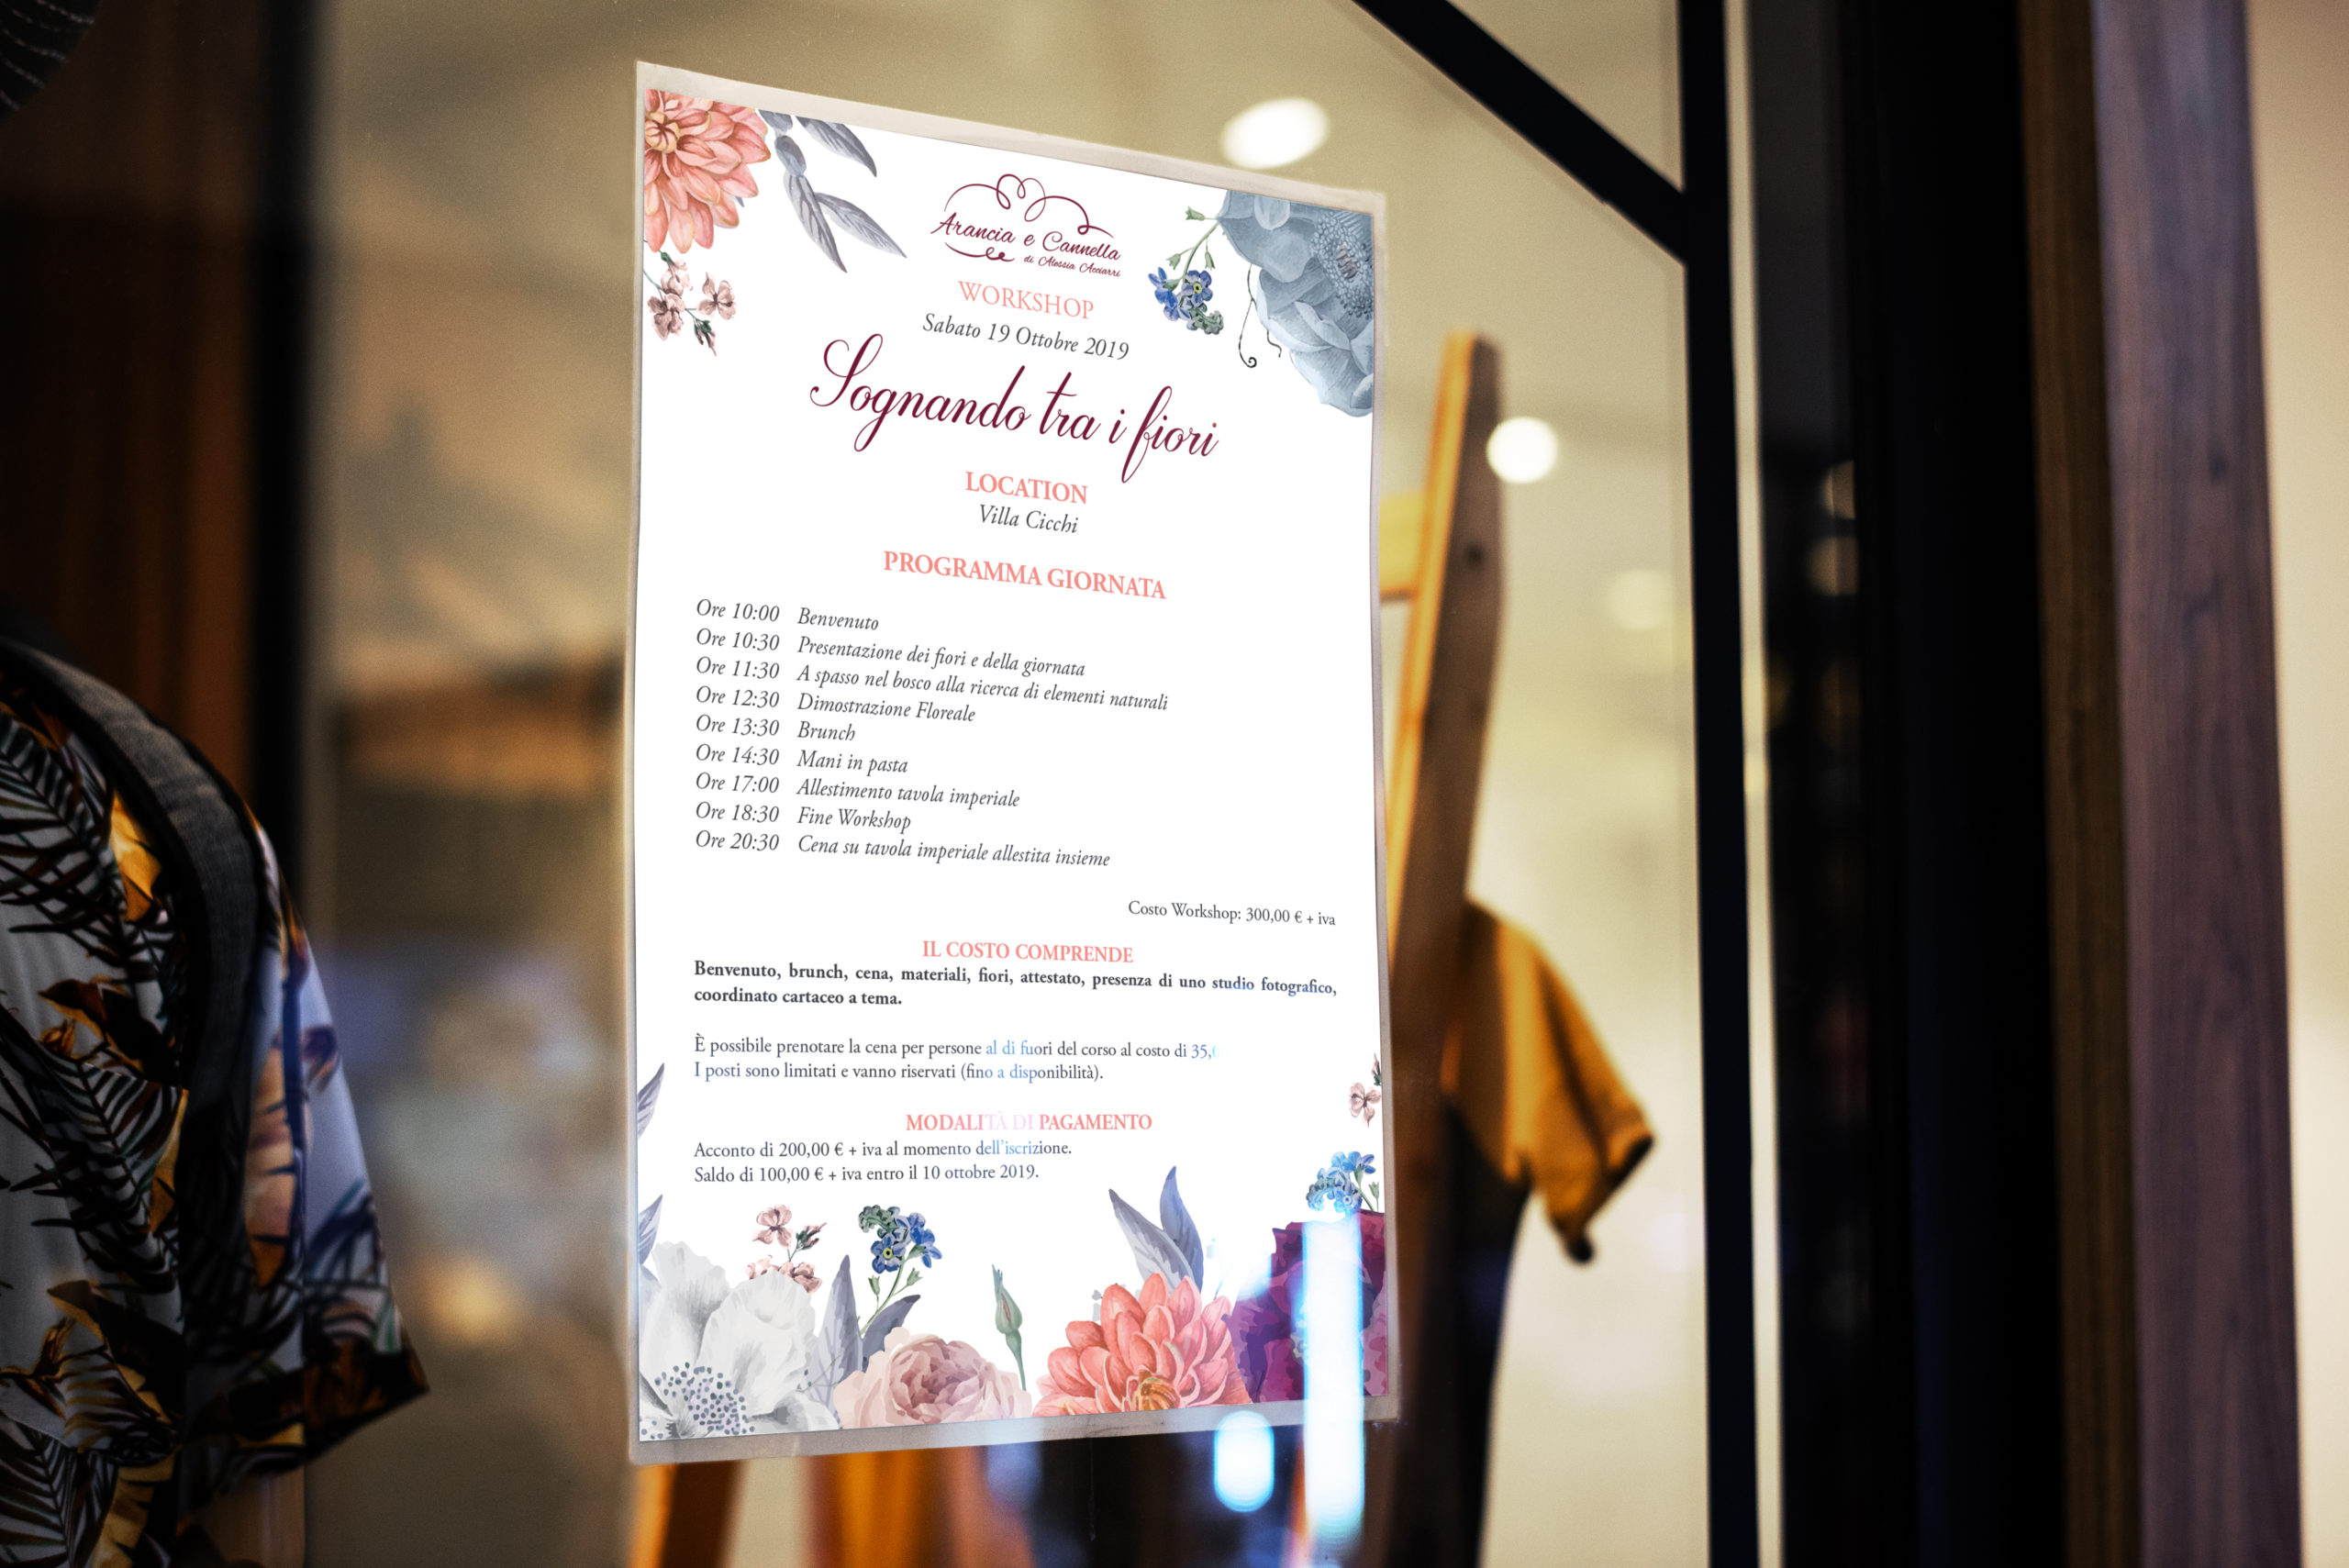 Arancia e Cannella
di Alessia Acciarri
WORKSHOP
Sabato 19 Ottobre 2019
Sognando tra i fiori
LOCATION
Villa Cicchi
PROGRAMMA GIORNATA
Ore 10:00 Benvenuto
Ore 10:30 Presentazione dei fiori e della giornata
Ore 11:30 A spasso nel bosco alla ricerca di elementi naturali
Ore 12:30 Dimostrazione Floreale
Ore 13:30 Brunch
Ore 14:30 Mani in pasta
Ore 17:00 Allestimento tavola imperiale
Ore 18:30 Fine Workshop
Ore 20:30 Cena su tavola imperiale allestita insieme
Costo Workshop: 300,00 € + iva
IL COSTO COMPRENDE
Benvenuto, brunch, cena, materiali, fiori, attestato, presenza di uno studio fotografico,
coordinato cartaceo a tema.
È possibile prenotare la cena per persone al di fuori del corso al costo di 35,
I posti sono limitati e vanno riservati (fino a disponibilità).
MODALITÀ DI PAGAMENTO
Acconto di 200,00 € + iva al momento dell'iscrizione.
Saldo di 100,00 € + iva entro il 10 ottobre 2019.